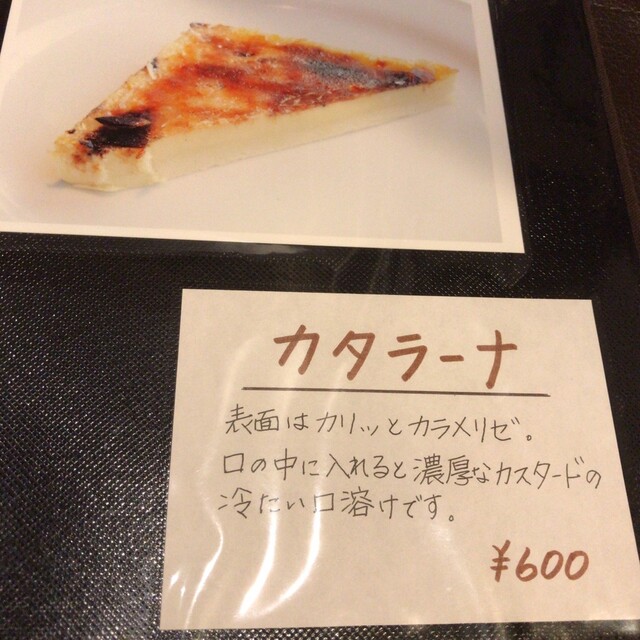 カタラーナ
表面はカリッとカラメリゼ。
口の中に入れると濃厚なカスタードの
冷たい口溶けです。
¥600